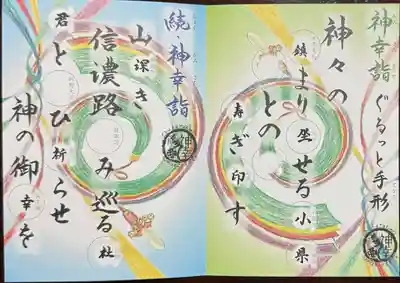 神幸詣 ぐるっと手形
神々の
鎮まり坐せる小県
との
寿ぎ印す
続・神幸詣
山深き
信濃路み巡る杜
君とひ祈らせ
神の御幸を